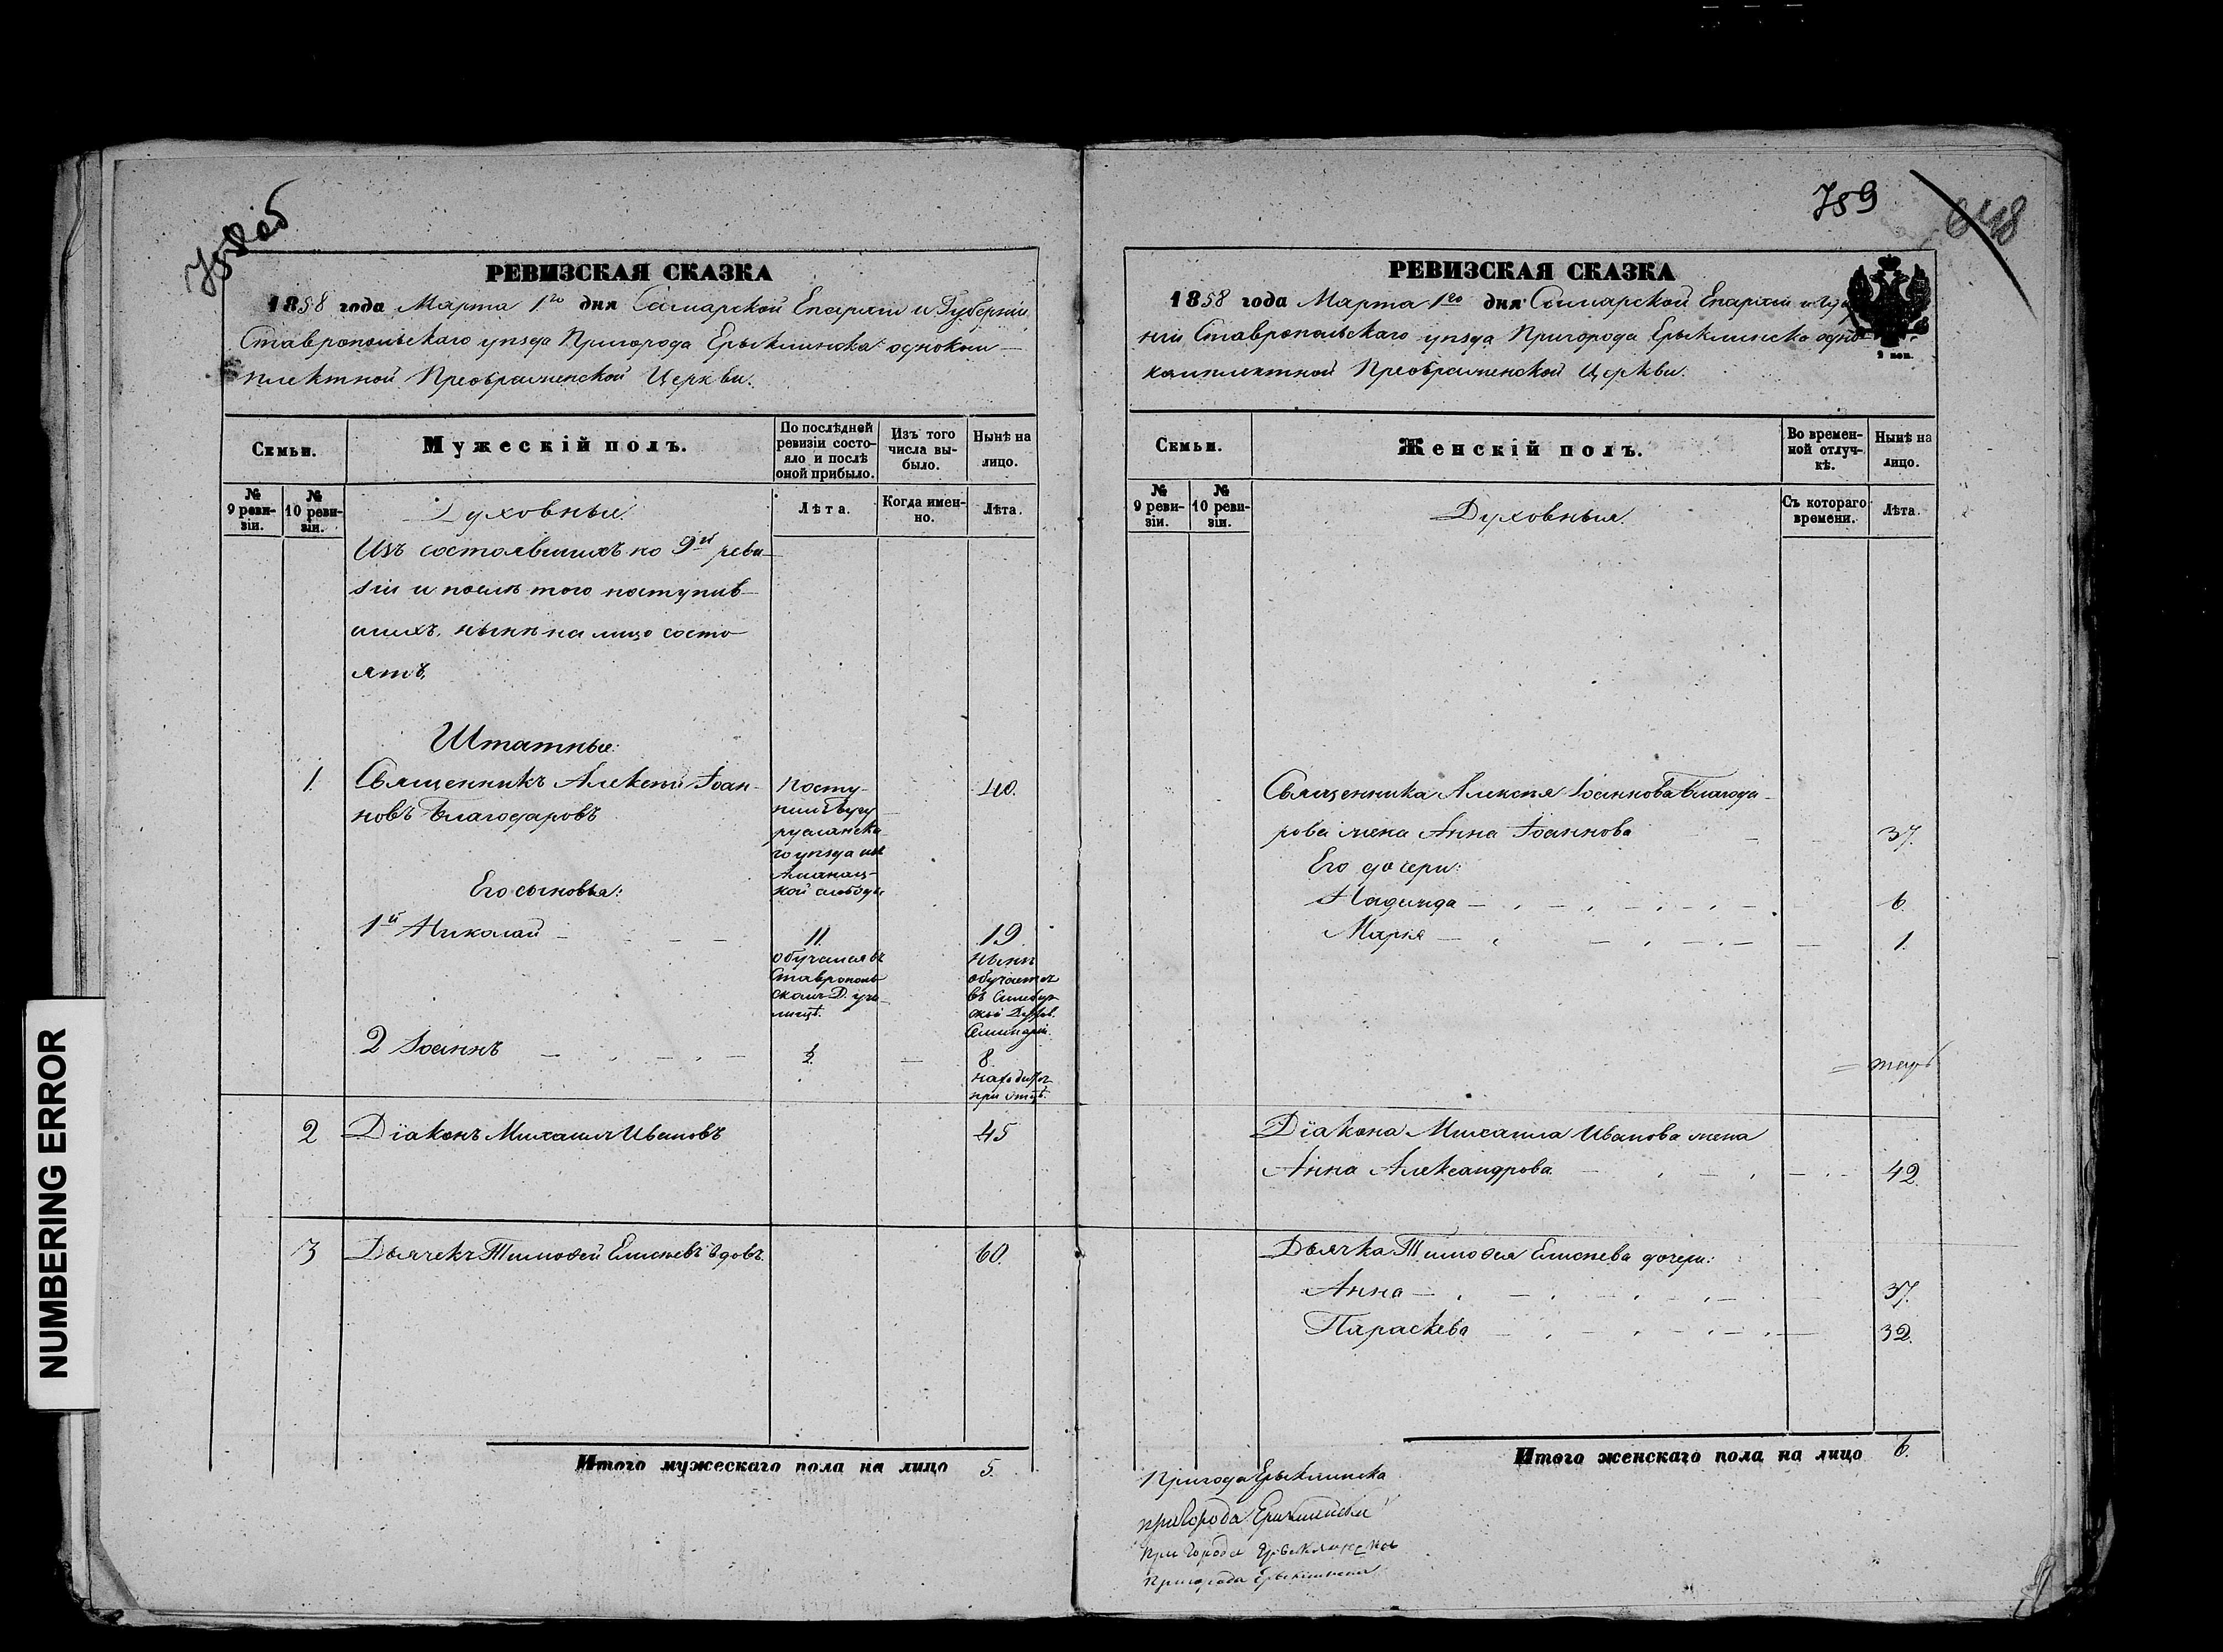 NUMBERING ERROR
758 об
РЕВИЗСКАЯ СКАЗКА
1858 года Марта 1го дня Самарской Епархіи и Губерніи
Ставропольскаго уѣзда Пригорода Ерыклинска одноком-
плектной Преображенской Церкви.
Семьи.
Мужескій полъ.
По послѣдней ревизіи состояло и послѣ оной прибыло.
Изъ того числа выбыло.
Нынѣ на лицо.
№ 9 ревизіи.
№ 10 ревизіи.
Лѣта.
Когда именно.
Лѣта.
Духовные.
Изъ состоявшихъ по 9й реви-
зіи и послѣ того поступив-
шихъ, нынѣ на лицо состо-
ятъ,
Штатные:
1. Священникъ Алексѣй Іоан- 40.
новъ Благодаровъ
Посту-
пилъ Бугу
русланска
го уѣзда изъ
кой слободы
Его сыновья:
1й Николай 11. 19.
обучался въ
Ставрополь
скомъ Д. учи-
лищѣ.
нынѣ
обучается
въ Симбир
ской Духов.
Семинаріи.
2 Іоаннъ ½. 8.
находится
при отцѣ.
2 Діаконъ Михаилъ Ивановъ 45
3 Дьячекъ Тимофей Елисѣевъ вдовъ. 60.
Итого мужескаго пола на лицо 5.
759
648
РЕВИЗСКАЯ СКАЗКА
1858 года Марта 1го дня Самарской Епархіи и Губер
ніи Ставропольскаго уѣзда Пригорода Ерыклинска одно-
комплектной Преображенской Церкви.
2 коп.
Семьи.
Женскій полъ.
Во временной отлучкѣ.
Нынѣ на лицо.
№ 9 ревизіи.
№ 10 ревизіи.
Съ котораго времени.
Лѣта.
Духовныя.
Священника Алексѣя Іоаннова Благода-
рова жена Анна Іоаннова 37.
Его дочери:
Надежда 6.
Марія 1.
Діакона Михаила Иванова жена
Анна Александрова 42.
Дьячка Тимофея Елисѣева дочери:
Анна 37.
Параскева 32.
Итого женскаго пола на лицо 6.
Пригода Ерыклинска
пригорода Ерыклинска
пригорода Ерыклинска
пригорода Ерыклинска